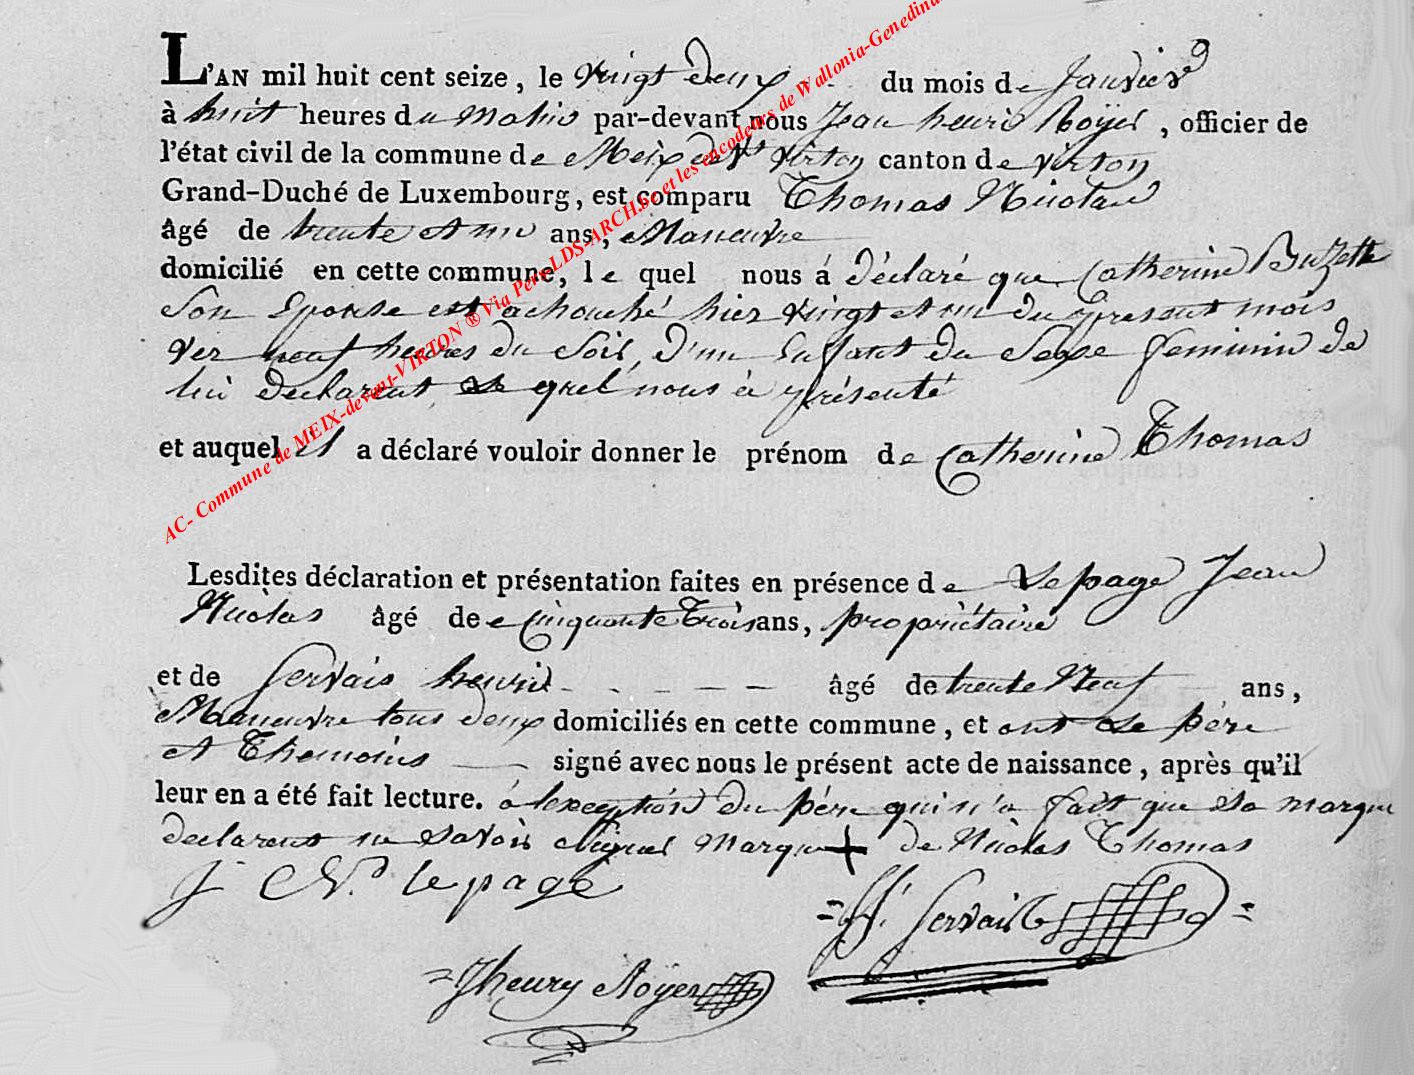 L'AN mil huit cent seize, le vingt deux du mois de Janvier
à huit heures du Matin par-devant nous Jean henri Roÿer, officier de
l'état civil de la commune de Meix devt virton canton de virton
Grand-Duché de Luxembourg, est comparu Thomas Nicolas
âgé de trente et un ans, Maneuvre
domicilié en cette commune, le quel nous á déclaré que Catherine Buzette
Son Epouse est achouché hier vingt et un du present mois
ver neuf heures du Soir, d'un Enfant du Sexe feminin de
lui declarant, Le quel nous à présenté
et auquel il a déclaré vouloir donner le prénom de Catherine Thomas
Lesdites déclaration et présentation faites en présence de Lepage Jean
Nicolas âgé de cinquante Trois ans, propriétaire
et de Servais henri - - - - âgé de trente Neuf ans,
Maneuvre tous deux domiciliés en cette commune, et ont Le père
et Themoins signé avec nous le présent acte de naissance, après qu'il
leur en a été fait lecture. á lexception du père qui n'a fait que sa marque
declarant ne savoir signer Marque + de Nicolas Thomas
J N. lepage
= H. Servais =
= Jhenry Roÿer
AC- Commune de MEIX-devant-VIRTON ® Via Pers.LDS-ARCH.be et les encodeurs de Wallonia-Genedina